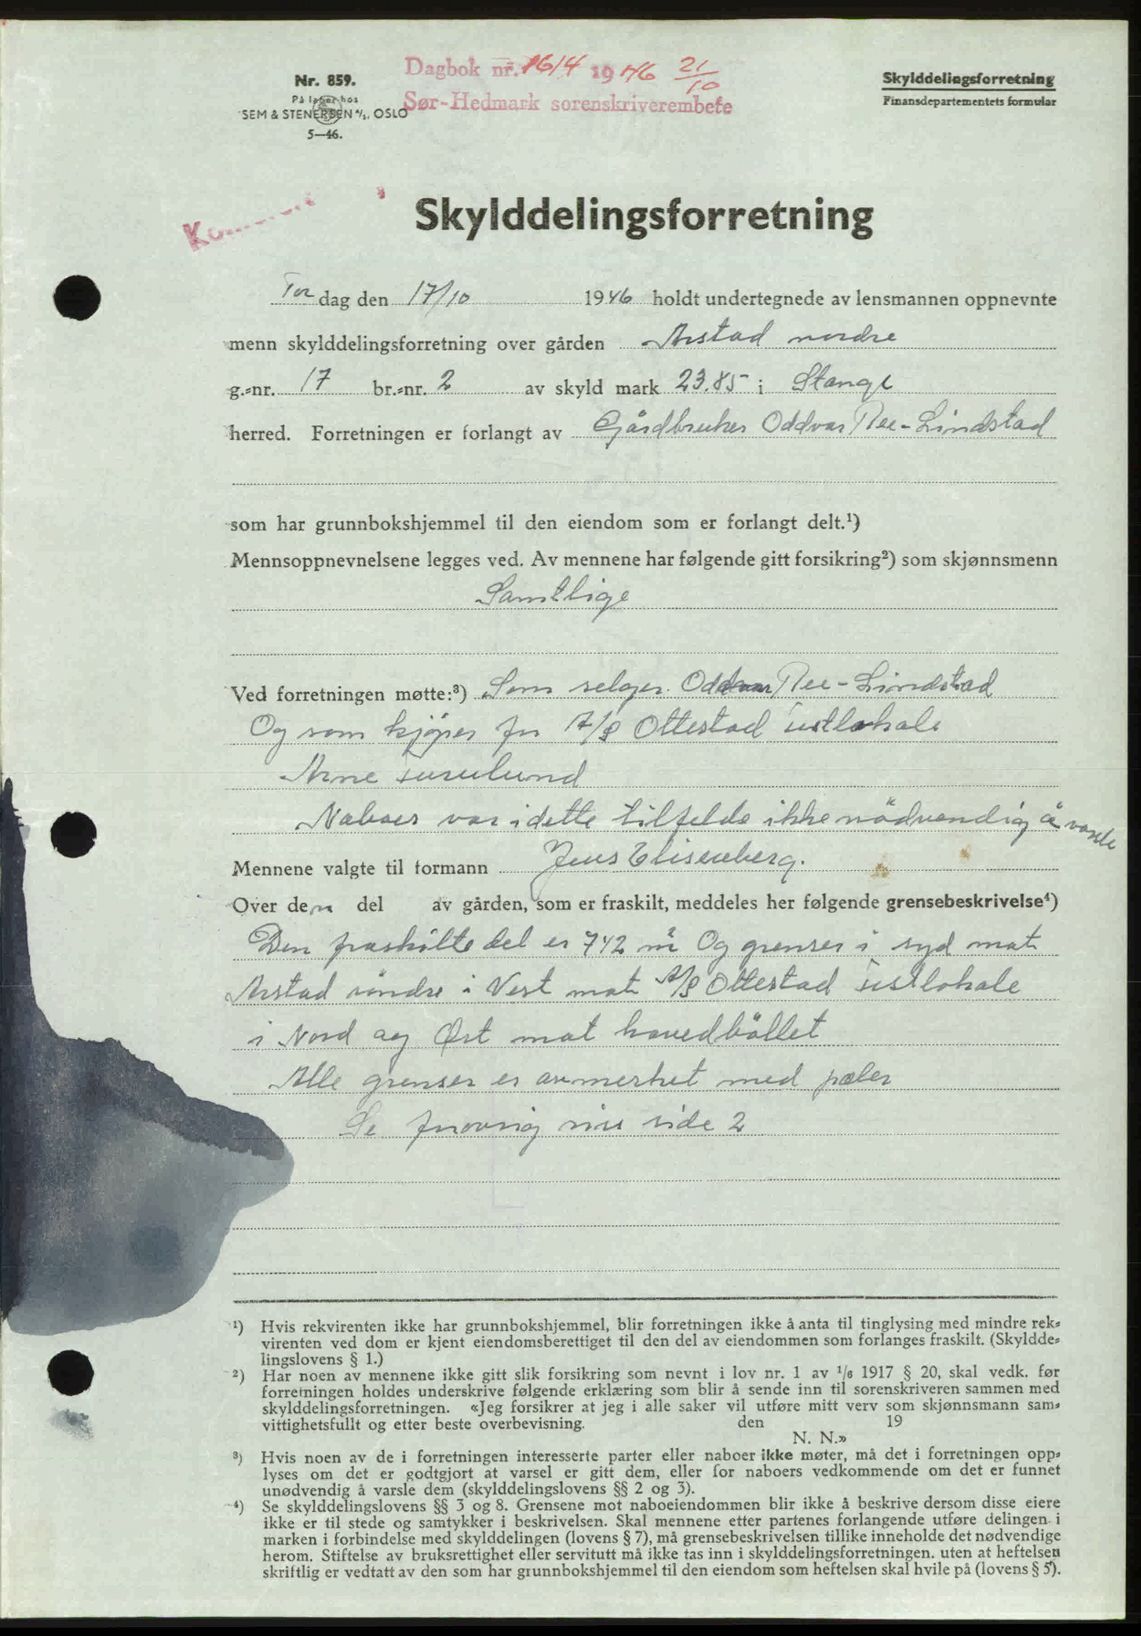 Dagbok nr. 1614 1946 21/10
Sør-Hedmark sorenskriverembete
Nr. 859.
På lager hos
SEM & STENERSEN A/S, OSLO
5—46.
Skylddelingsforretning
Finansdepartementets formular
Skylddelingsforretning
Tor dag den 17/10 1946 holdt undertegnede av lensmannen oppnevnte
menn skylddelingsforretning over gården Arstad nordre
g.-nr. 17 br.-nr. 2 av skyld mark 23.85 i Stange
herred. Forretningen er forlangt av Gårdbruker Oddvar Ree-Lindstad
som har grunnbokshjemmel til den eiendom som er forlangt delt.¹)
Mennsoppnevnelsene legges ved. Av mennene har følgende gitt forsikring²) som skjønnsmenn
Samtlige
Ved forretningen møtte:³) Som selger Oddvar Ree-Lindstad
Og som kjøper for A/S Ottestad festlokale
Arne
Naboer var i dette tilfelde ikke nödvendig å varsle
Mennene valgte til formann Jens Elisenberg.
Over den del av gården, som er fraskilt, meddeles her følgende grensebeskrivelse⁴)
Den fraskilte del er 742 m² Og grenser i syd mot
Arstad söndre i Vest mot A/S Ottestad festlokale
i Nord og Öst mot hovedböllet
Alle grenser er avmerket med pæler
Se forövrig side 2
¹) Hvis rekvirenten ikke har grunnbokshjemmel, blir forretningen ikke å anta til tinglysing med mindre rek-
virenten ved dom er kjent eiendomsberettiget til den del av eiendommen som forlanges fraskilt. (Skyldde-
lingslovens § 1.)
²) Har noen av mennene ikke gitt slik forsikring som nevnt i lov nr. 1 av 1/6 1917 § 20, skal vedk. før
forretningen holdes underskrive følgende erklæring som blir å sende inn til sorenskriveren sammen med
skylddelingsforretningen. «Jeg forsikrer at jeg i alle saker vil utføre mitt verv som skjønnsmann sam-
vittighetsfullt og etter beste overbevisning. den 19
N. N.»
³) Hvis noen av de i forretningen interesserte parter eller naboer ikke møter, må det i forretningen opp-
lyses om det er godtgjort at varsel er gitt dem, eller for naboers vedkommende om det er funnet
unødvendig å varsle dem (skylddelingslovens §§ 2 og 3).
⁴) Se skylddelingslovens §§ 3 og 8. Grensene mot naboeiendommen blir ikke å beskrive dersom disse eiere
ikke er til stede og samtykker i beskrivelsen. Skal mennene etter partenes forlangende utføre delingen i
marken i forbindelse med skylddelingen (lovens § 7), må grensebeskrivelsen tillike inneholde det nødvendige
herom. Stiftelse av bruksrettighet eller servitutt må ikke tas inn i skylddelingsforretningen. uten at heftelsen
skriftlig er vedtatt av den som har grunnbokshjemmel til den eiendom som heftelsen skal hvile på (lovens § 5).